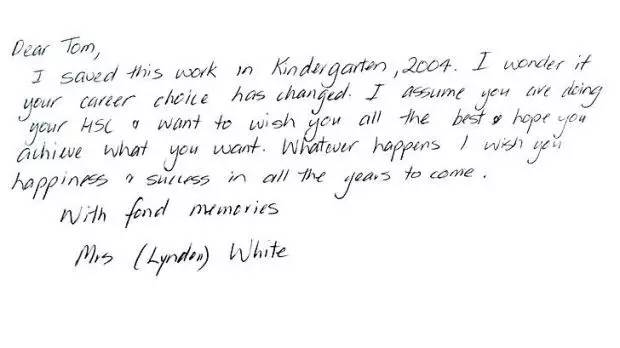 Dear Tom,
I saved this work in Kindergarten, 2004. I wonder if
your career choice has changed. I assume you are doing
your HSC & want to wish you all the best & hope you
achieve what you want. Whatever happens I wish you
happiness & success in all the years to come.
With fond memories
Mrs (Lynden) White